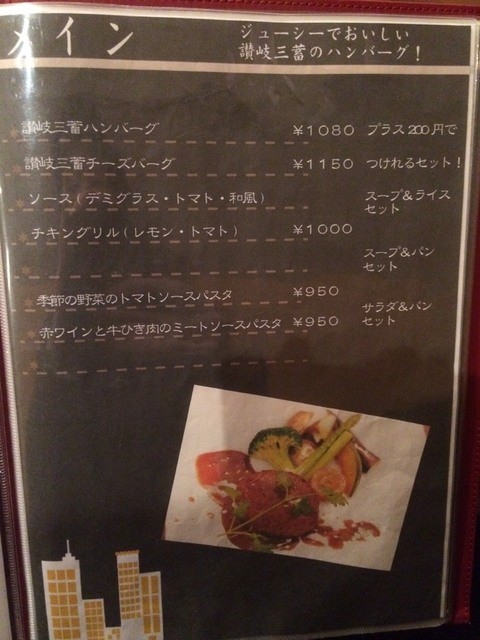 メイン
ジューシーでおいしい
讃岐三蓄のハンバーグ！
讃岐三蓄ハンバーグ ￥1080
プラス200円で
讃岐三蓄チーズバーグ ￥1150
つけれるセット！
ソース(デミグラス・トマト・和風)
スープ&ライス
セット
チキングリル(レモン・トマト) ￥1000
スープ&パン
セット
季節の野菜のトマトソースパスタ ￥950
サラダ&パン
セット
赤ワインと牛ひき肉のミートソースパスタ ￥950